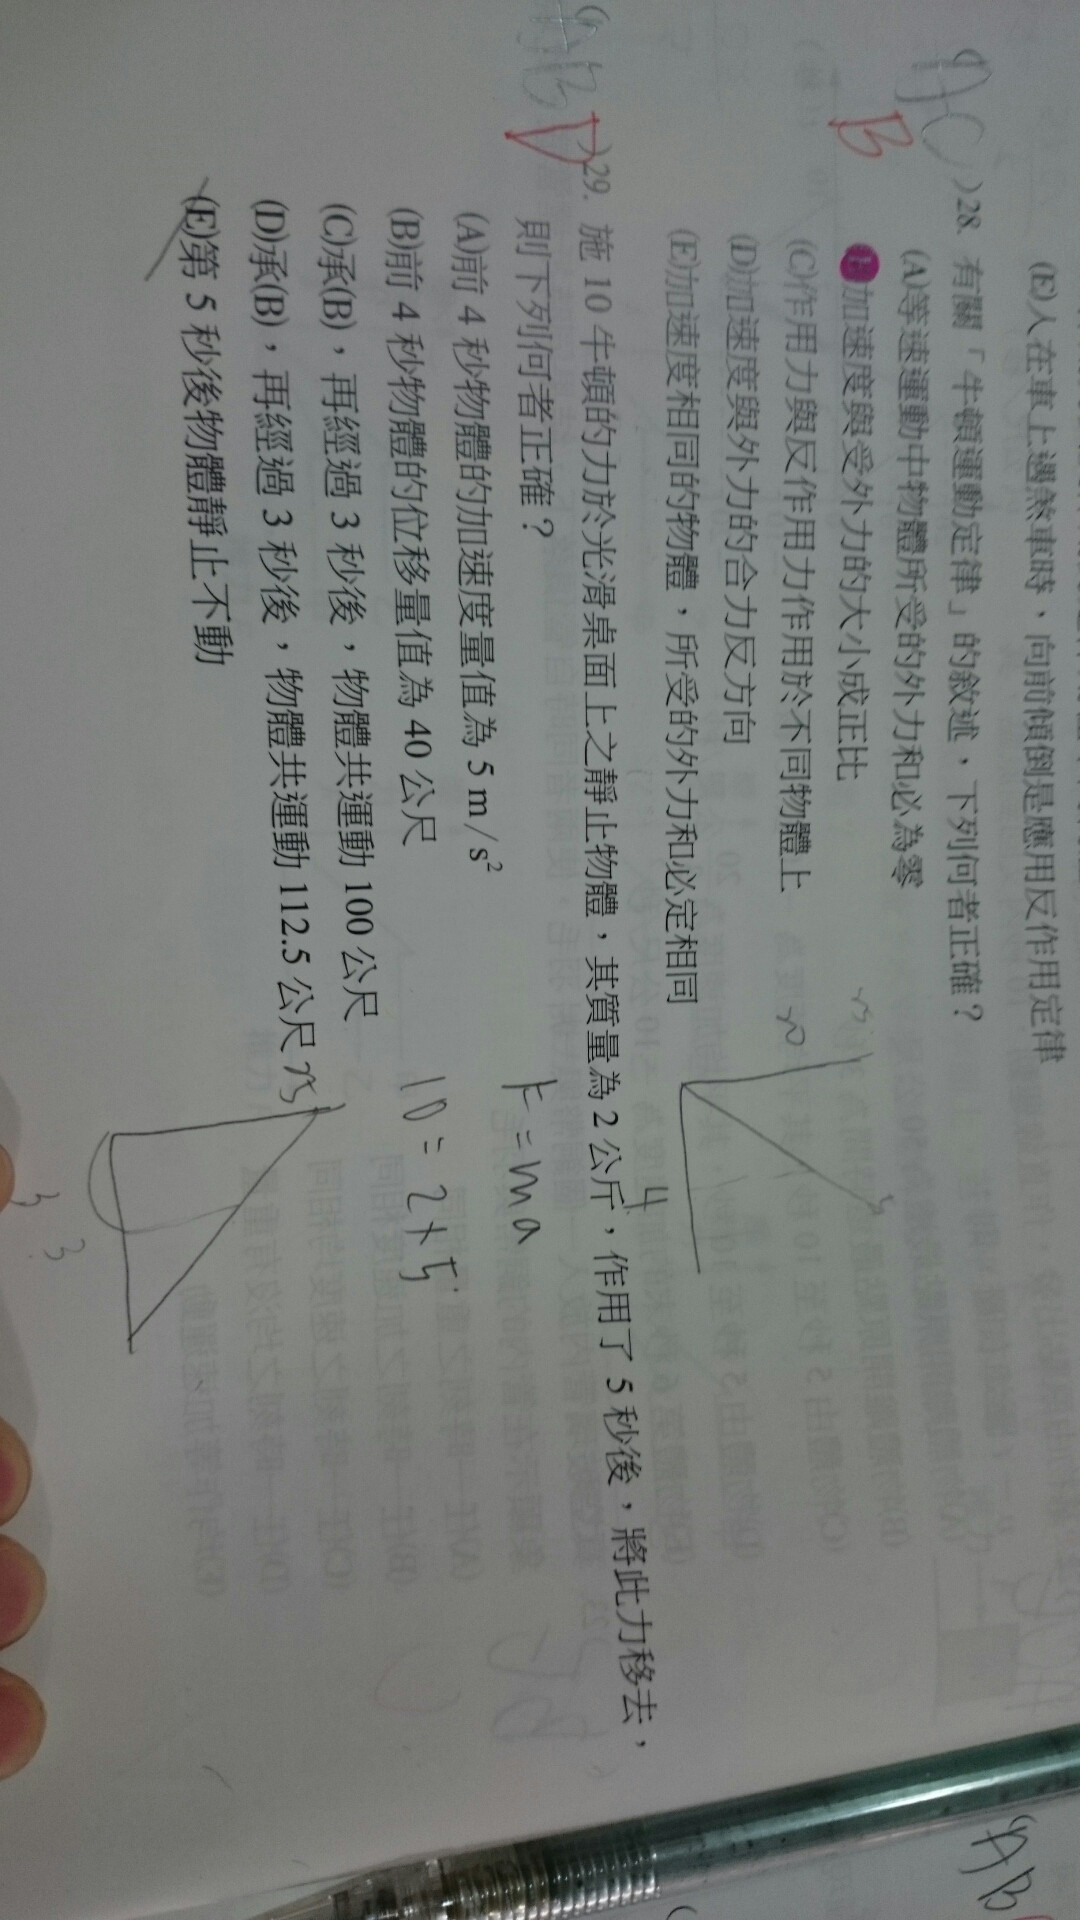 (E)人在車上遇煞車時，向前傾倒是應用反作用定律
AC )28. 有關「牛頓運動定律」的敘述，下列何者正確？
B
(A)等速運動中物體所受的外力和必為零
加速度與受外力的大小成正比
(C)作用力與反作用力作用於不同物體上
(D)加速度與外力的合力反方向
(E)加速度相同的物體，所受的外力和必定相同
AB D )29. 施 10 牛頓的力於光滑桌面上之靜止物體，其質量為 2 公斤，作用了 5 秒後，將此力移去，
則下列何者正確？
4
(A)前 4 秒物體的加速度量值為 5 m/s²
F=ma
(B)前 4 秒物體的位移量值為 40 公尺
10=2×5
(C)承(B)，再經過 3 秒後，物體共運動 100 公尺
(D)承(B)，再經過 3 秒後，物體共運動 112.5 公尺
(E)第 5 秒後物體靜止不動
3
3
AB